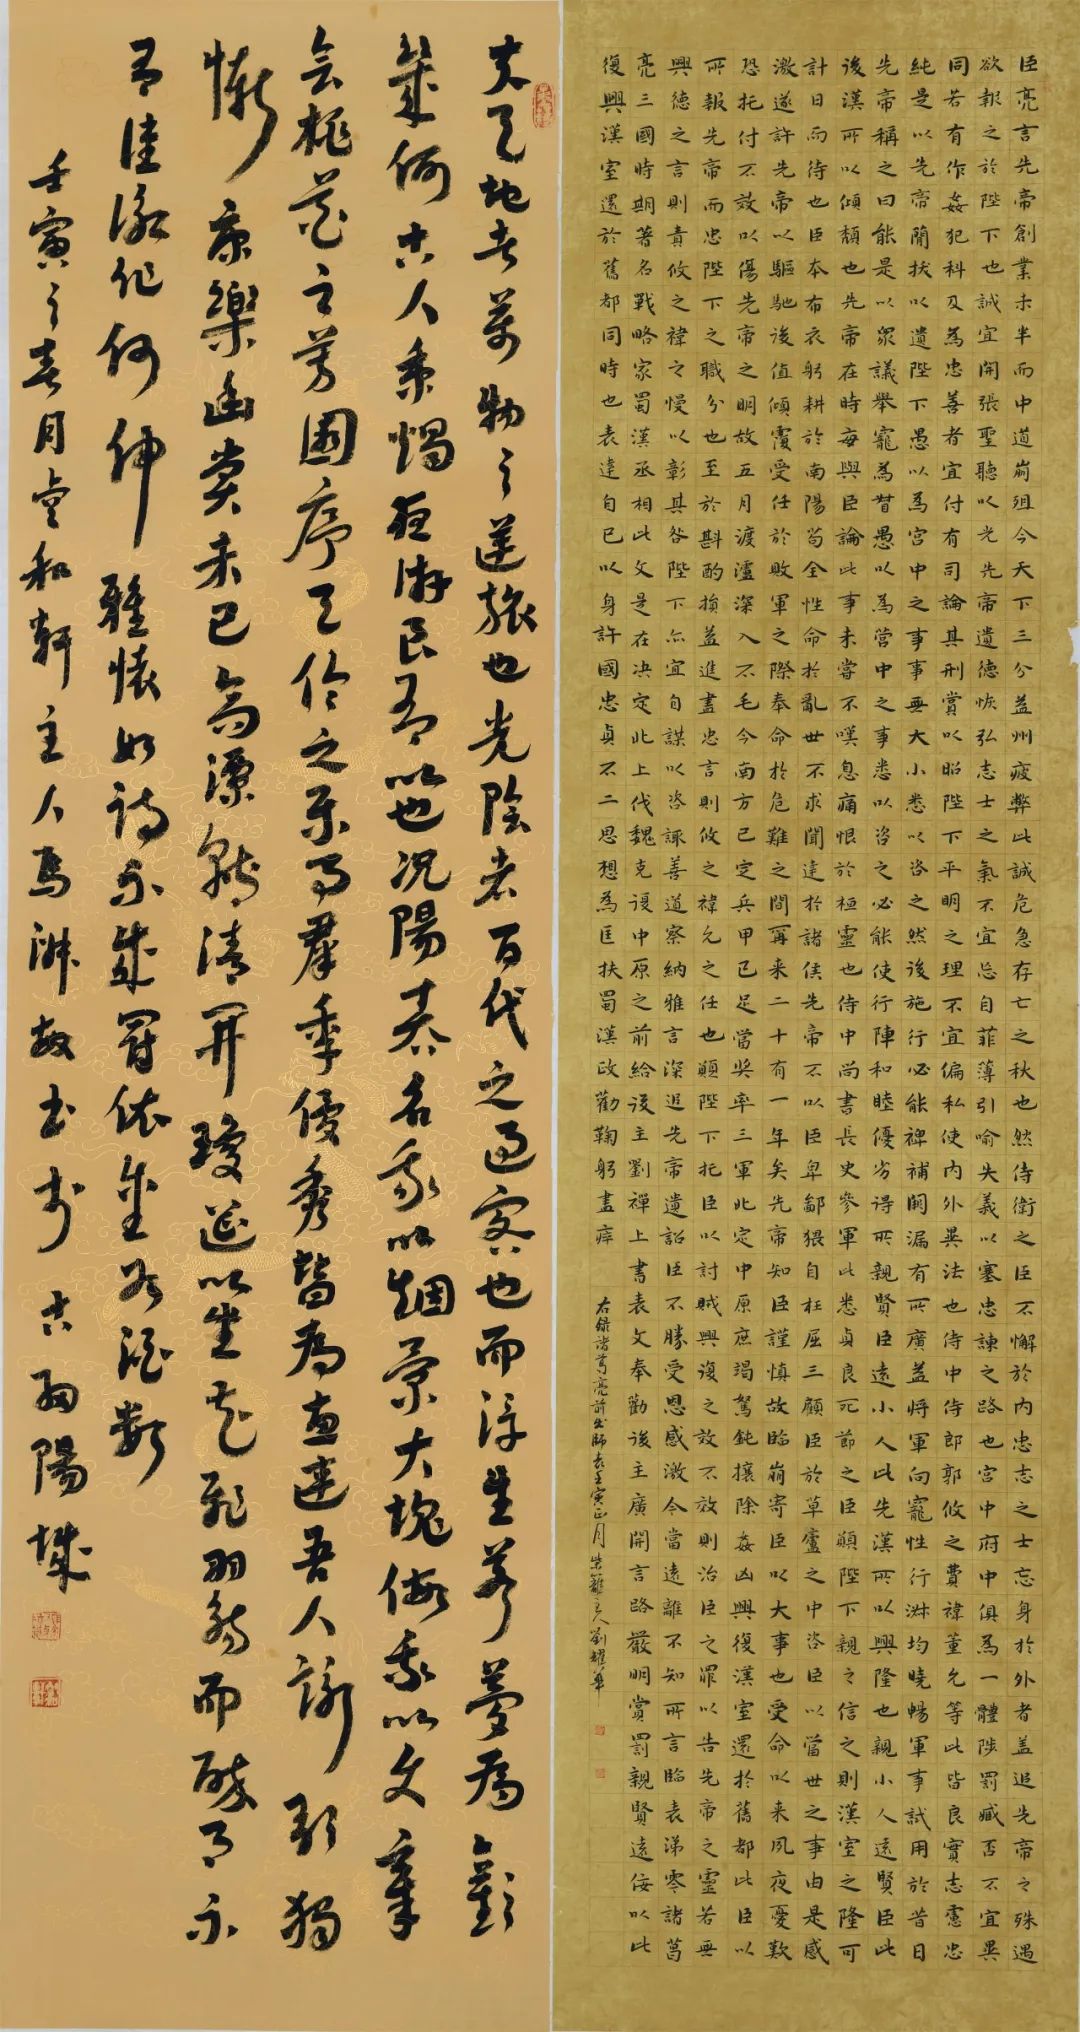 臣亮言先帝創業未半而中道崩殂今天下三分益州疲弊此誠危急存亡之秋也然侍衛之臣不懈於內忠志之士忘身於外者蓋追先帝之殊遇
欲報之於陛下也誠宜開張聖聽以光先帝遺德恢弘志士之氣不宜忘自菲薄引喻失義以塞忠諫之路也宮中府中俱為一體陟罰臧否不宜異
同若有作姦犯科及為忠善者宜付有司論其刑賞以昭陛下平明之理不宜偏私使內外異法也侍中侍郎郭攸之費禕董允等此皆良實志慮忠
純是以先帝簡拔以遺陛下愚以為宮中之事事無大小悉以咨之然後施行必能裨補闕漏有所廣益將軍向寵性行淑均曉暢軍事試用於昔日
先帝稱之曰能是以眾議舉寵為督愚以為營中之事悉以咨之必能使行陣和睦優劣得所親賢臣遠小人此先漢所以興隆也親小人遠賢臣此
後漢所以傾頹也先帝在時每與臣論此事未嘗不嘆息痛恨於桓靈也侍中尚書長史參軍此悉貞良死節之臣願陛下親之信之則漢室之隆可
計日而待也臣本布衣躬耕於南陽苟全性命於亂世不求聞達於諸侯先帝不以臣卑鄙猥自枉屈三顧臣於草廬之中咨臣以當世之事由是感
激遂許先帝以驅馳後值傾覆受任於敗軍之際奉命於危難之間爾來二十有一年矣先帝知臣謹慎故臨崩寄臣以大事也受命以來夙夜憂歎
恐托付不效以傷先帝之明故五月渡瀘深入不毛今南方已定兵甲已足當獎率三軍北定中原庶竭駑鈍攘除姦凶興復漢室還於舊都此臣以
所報先帝而忠陛下之職分也至於斟酌損益進盡忠言則攸之禕允之任也願陛下托臣以討賊興復之效不效則治臣之罪以告先帝之靈若無
興德之言則責攸之禕之慢以彰其咎陛下亦宜自謀以咨諏善道察納雅言深追先帝遺詔臣不勝受恩感激今當遠離不知所言臨表涕零諸葛
亮三國時期著名戰略家蜀漢丞相此文是在決定北上伐魏克復中原之前給後主劉禪上書表文奉勸後主廣開言路嚴明賞罰親賢遠佞以此
復興漢室還於舊都同時也表達自己以身許國忠貞不二思想為匡扶蜀漢政勸鞠躬盡瘁
右錄諸葛亮前出師表壬寅正月 柴籬主人劉耀華
夫天地者萬物之逆旅也光陰者百代之過客也而浮生若夢為歡
幾何古人秉燭夜游良有以也況陽春召我以烟景大塊假我以文章
會桃花之芳園序天倫之樂事群季俊秀皆為惠連吾人詠歌獨
慚康樂幽賞未已高譚轉清開瓊筵以坐花飛羽觴而醉月不
有佳詠作何伸雅懷如詩不成罰依金谷酒數
壬寅之春月壹和軒主人馬淋敏書於古南陽城